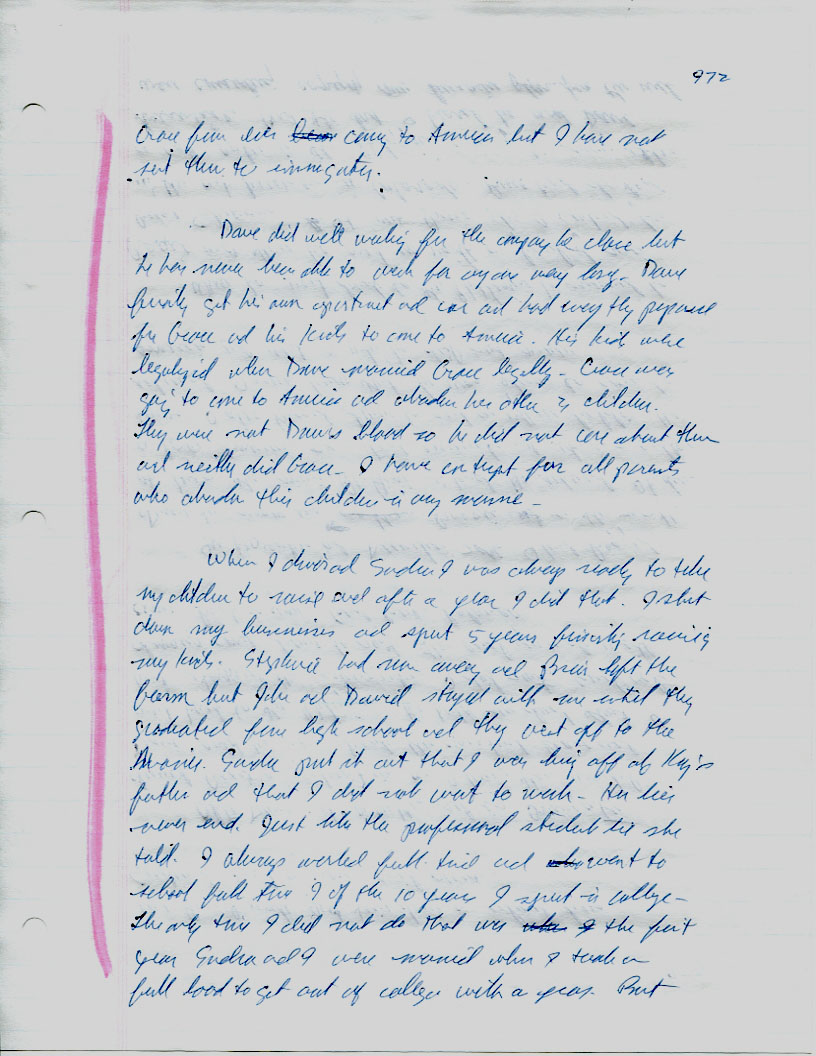 972
Grace from ever coming to America but I have not
sent them to immigration.
Dave did well working for the company he chose but
he has never been able to work for anyone very long. Dave
finally got his own apartment and car and had everything prepared
for Grace and his kids to come to America. His kids were
legalized when Dave married Grace legally. Grace was
going to come to America and abandon her other children.
They were not Dave's blood so he did not care about them
and neither did Grace. I have contempt for all parents
who abandon their children in any manner.
When I divorced Sandra I was always ready to take
my children to raise and after a year I did that. I shut
down my businesses and spent 5 years finishing raising
my kids. Stephanie had run away and Brian left the
farm but John and David stayed with me until they
graduated from high school and they went off to the
Marines. Sandra put it out that I was living off of
father and that I did not want to work. Her lies
never end. Just like the professional student lie she
told. I always worked full time and went to
school full time 9 of the 10 years I spent in college.
The only time I did not do that was the first
year Sandra and I were married when I took a
full load to get out of college with a year. But